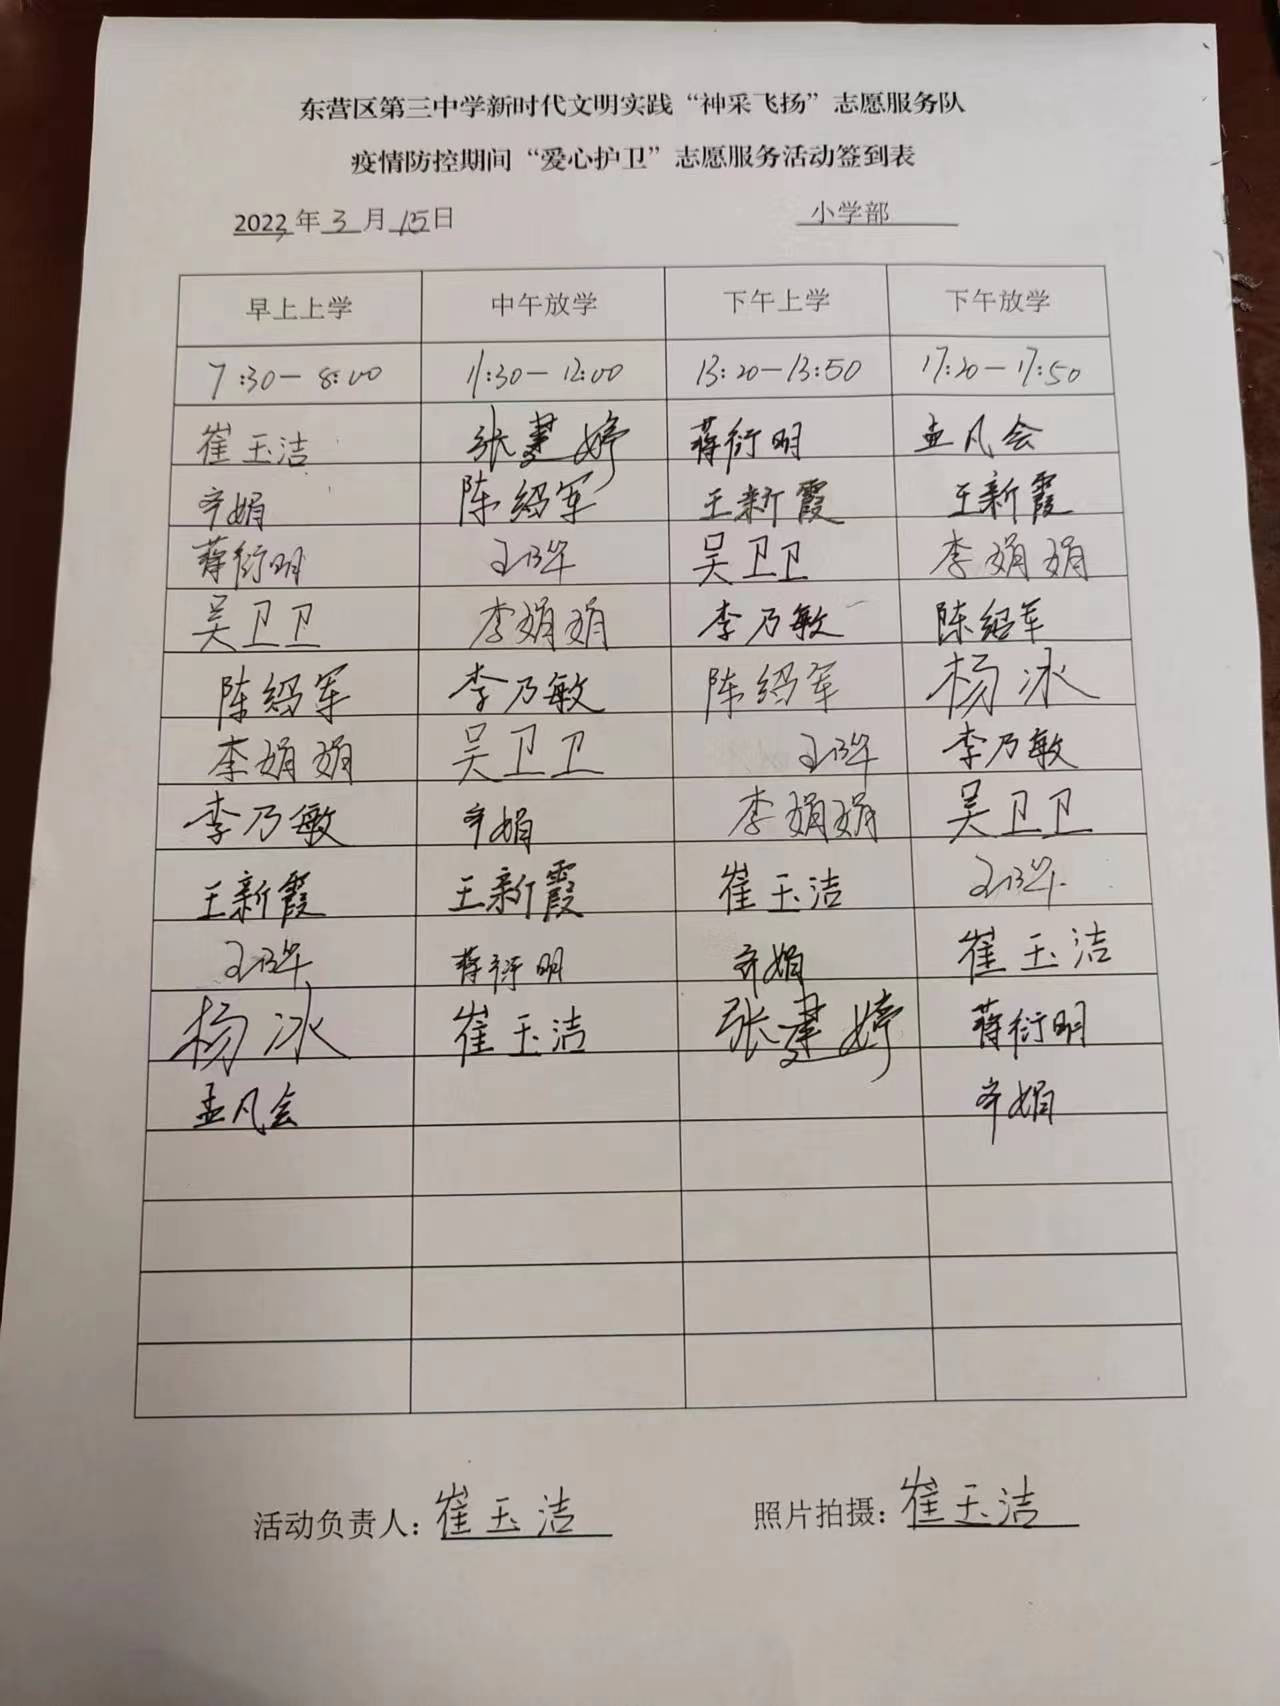 东营区第三中学新时代文明实践“神采飞扬”志愿服务队
疫情防控期间“爱心护卫”志愿服务活动签到表
2022年3月15日 小学部
早上上学 中午放学 下午上学 下午放学
7:30-8:00 11:30-12:00 13:20-13:50 17:20-17:50
崔玉洁 张婷 蒋衍明 孟凡会
齐娟 陈绍军 王新霞 王新霞
蒋衍明 吴卫卫 李娟娟
吴卫卫 李娟娟 李乃敏 陈绍军
陈绍军 李乃敏 陈绍军 杨冰
李娟娟 吴卫卫 李乃敏
李乃敏 齐娟 李娟娟 吴卫卫
王新霞 王新霞 崔玉洁
蒋衍明 齐娟 崔玉洁
杨冰 崔玉洁 张婷 蒋衍明
孟凡会 齐娟
活动负责人：崔玉洁 照片拍摄：崔玉洁